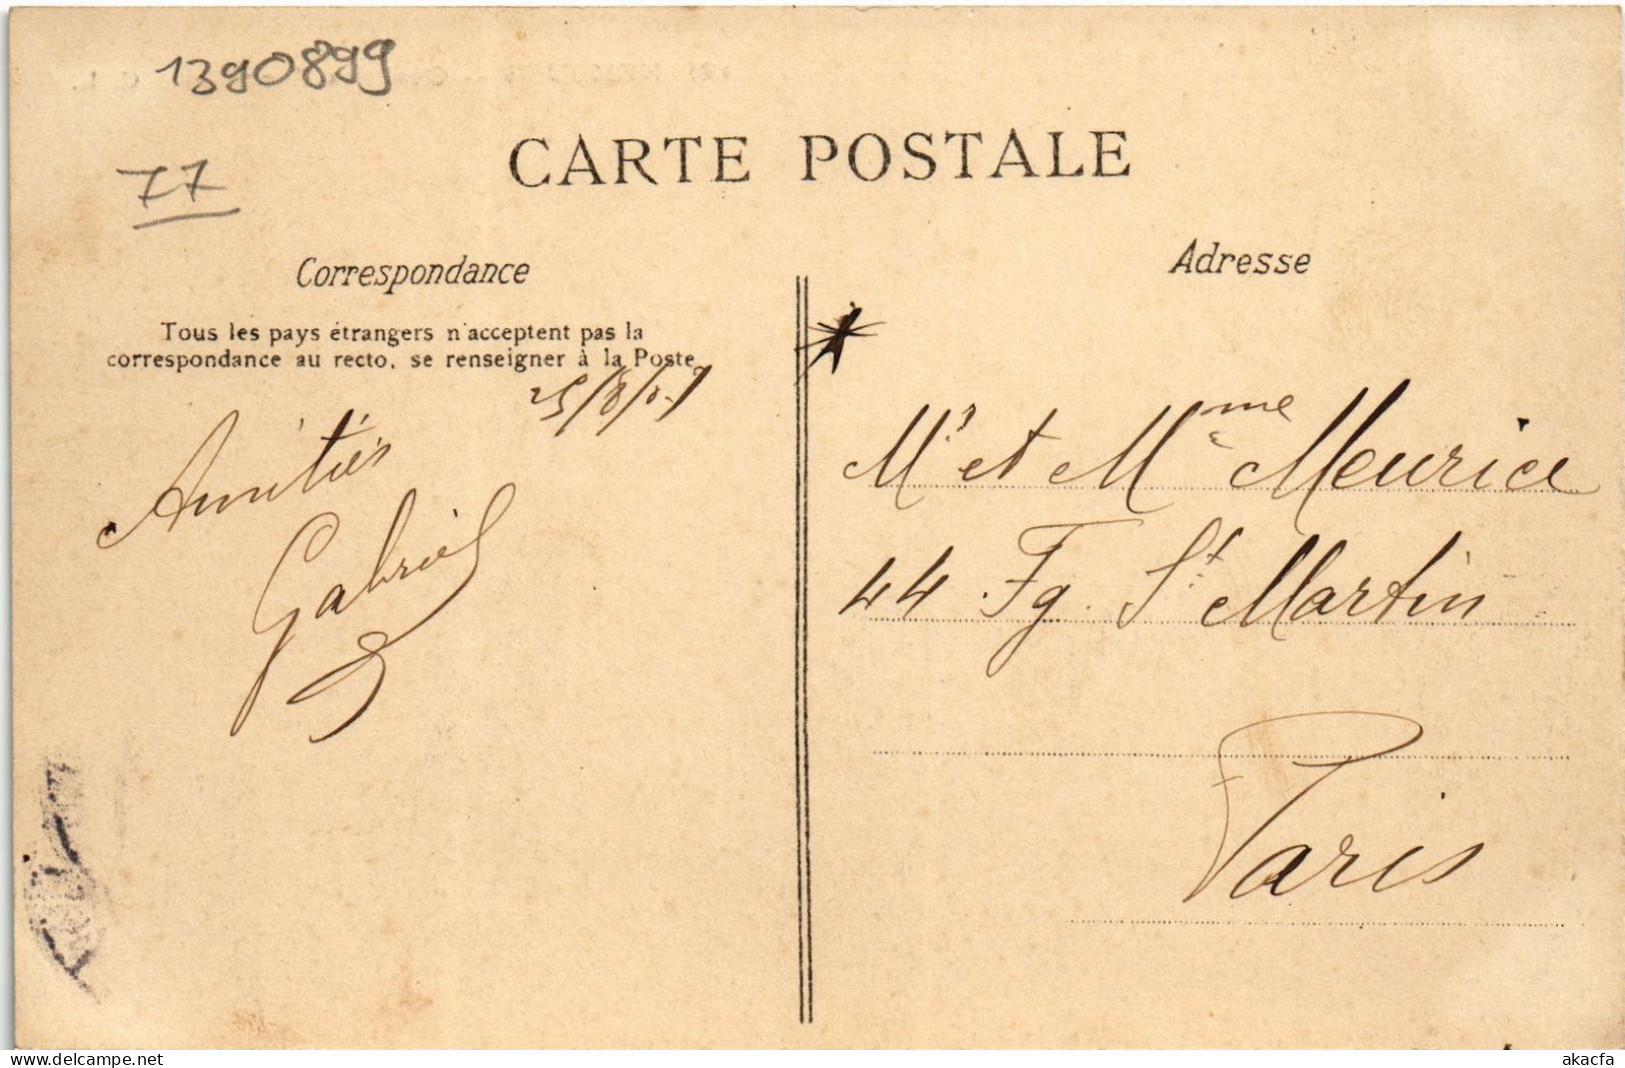 1390899
77
CARTE POSTALE
Correspondance
Tous les pays étrangers n'acceptent pas la
correspondance au recto, se renseigner à la Poste
25/8/07
Amitiés
Gabriel
Adresse
Mr et Mme Meurice
44 Fg. St Martin
Paris
www.delcampe.net
akacfa